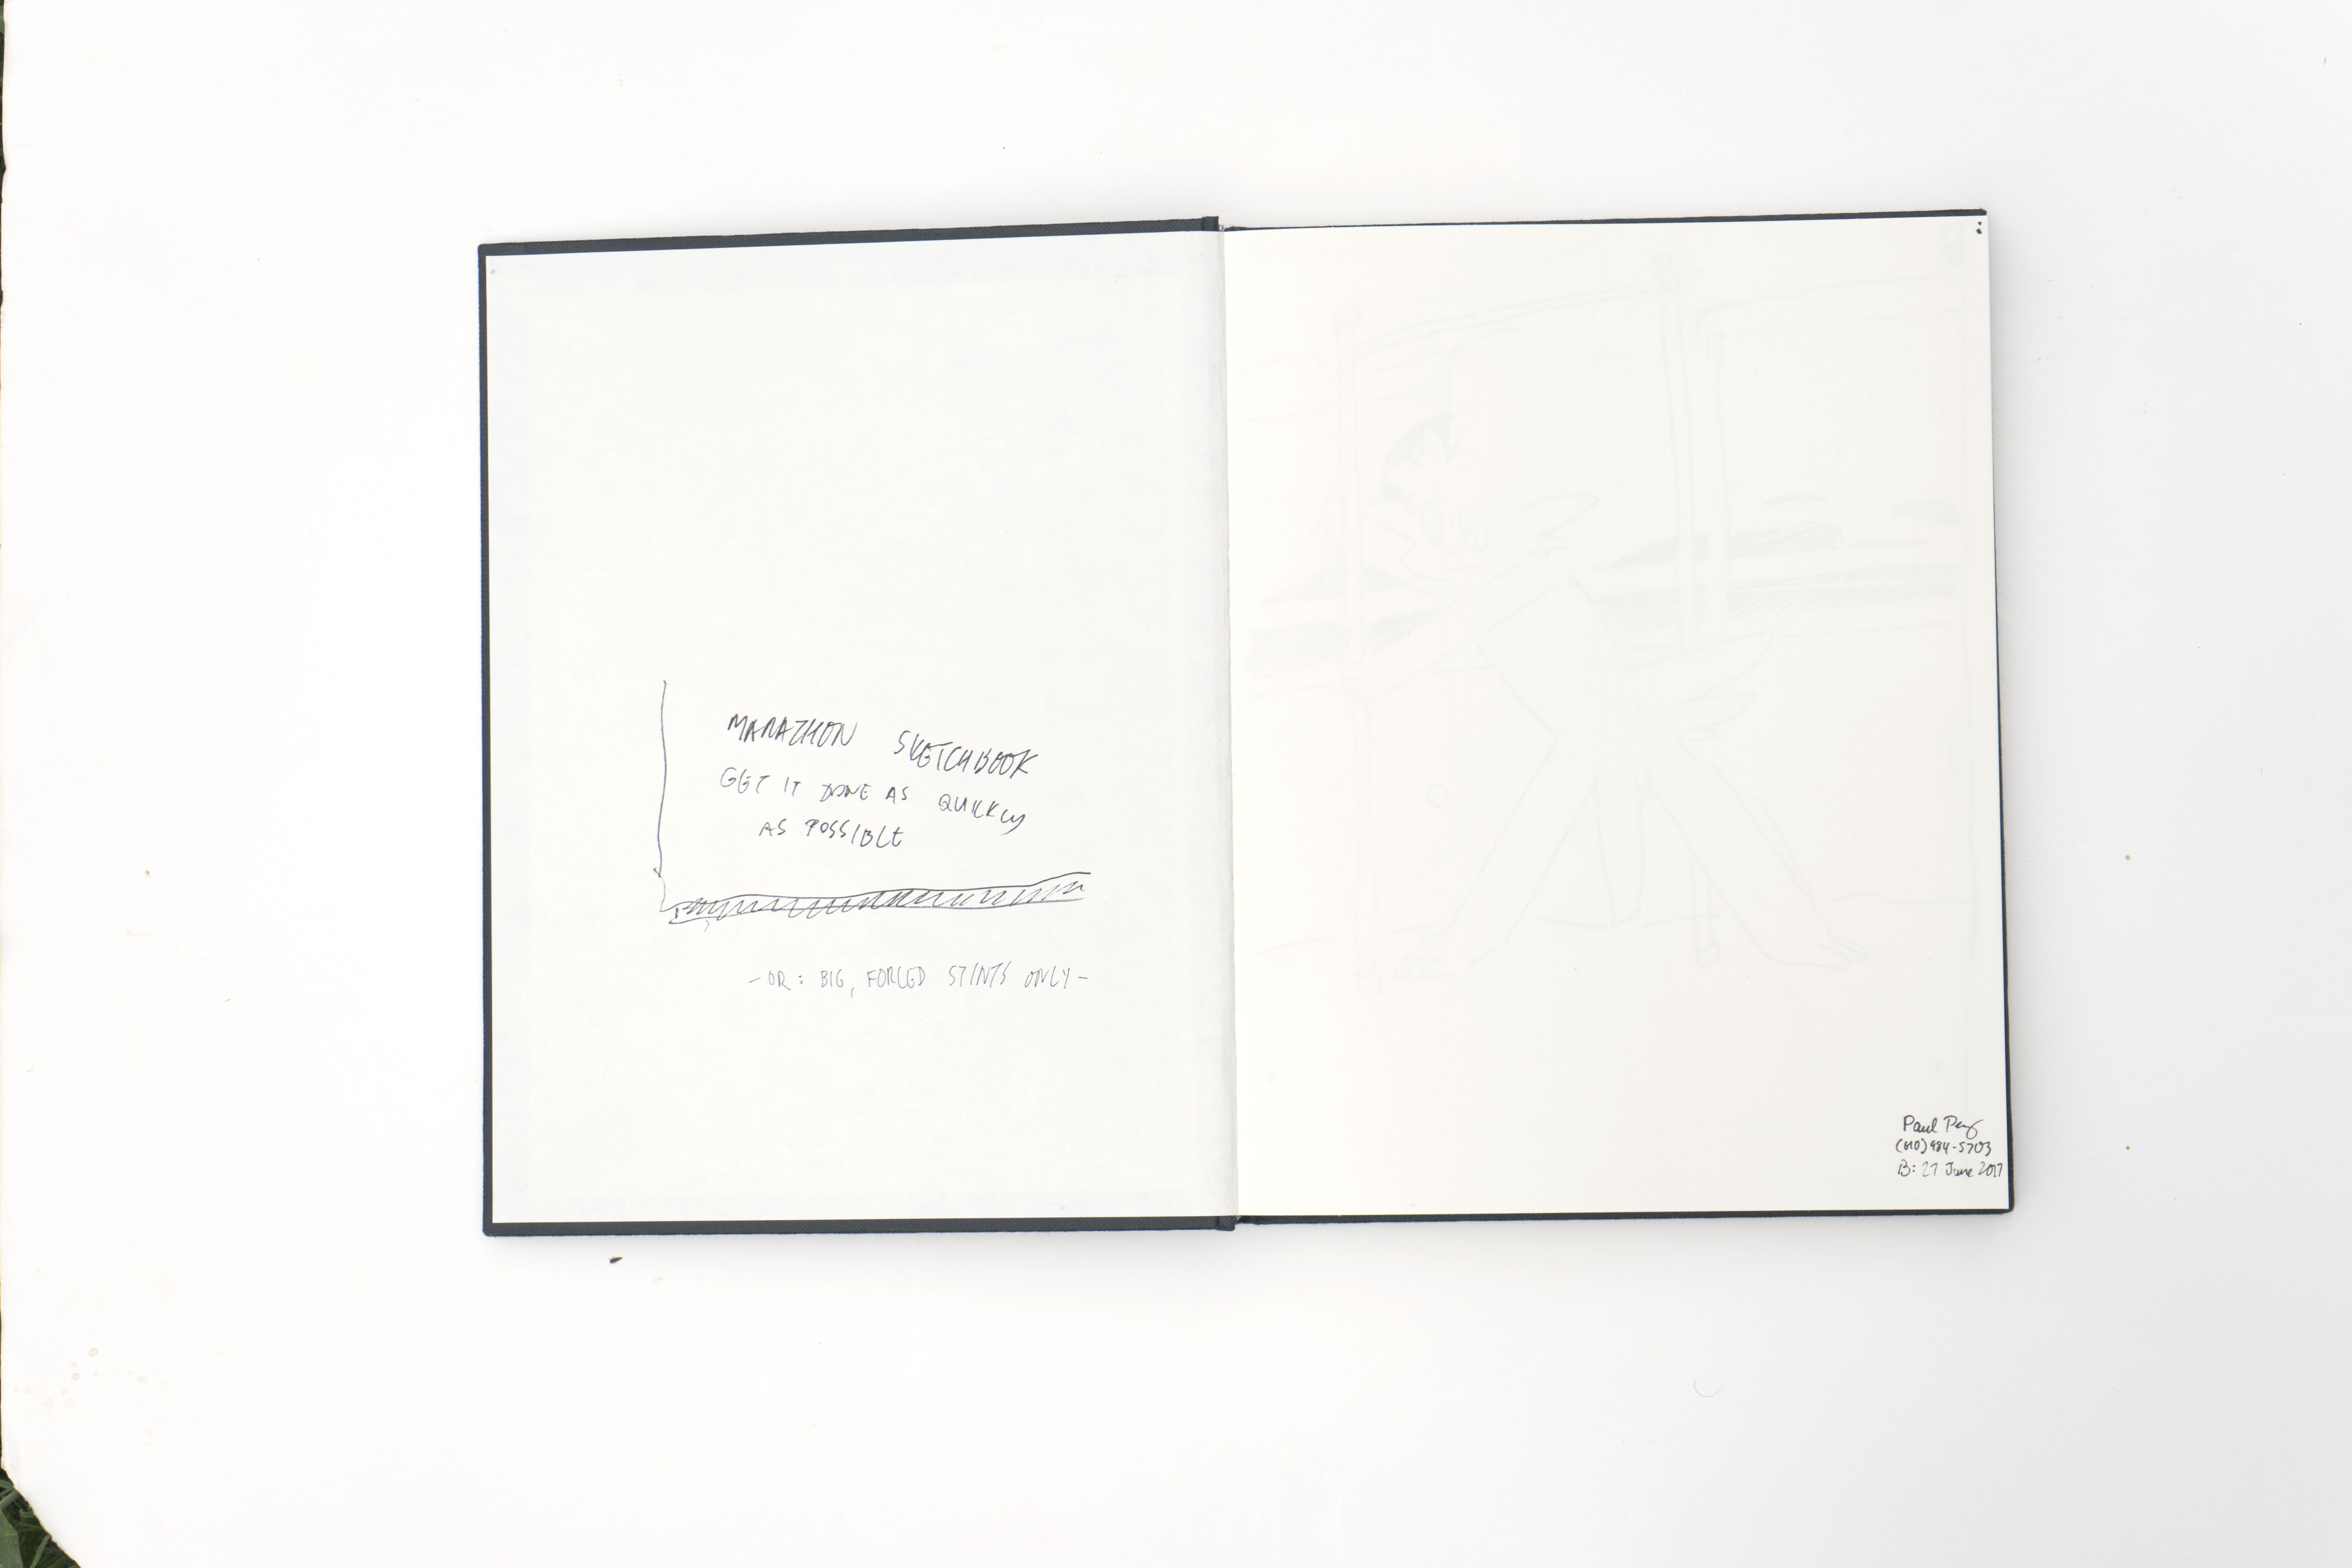 MARATHON SKETCHBOOK
GET IT DONE AS QUICKLY
AS POSSIBLE
- OR: BIG, FORCED STINTS ONLY -
Paul
B: 27 June 2017